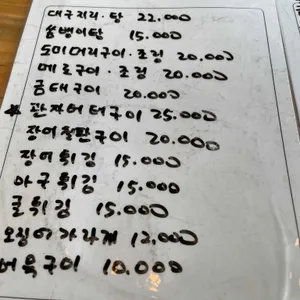 대구지리·탕 22.000
쏨뱅이탕 15.000
도미머리구이·조림 20.000
메로구이·조림 20.000
금태구이 20.000
★관자버터구이 25.000
장어철판구이 20.000
장어튀김 15.000
아구튀김 15.000
굴튀김 15.000
오징어가라게 12,000
어묵구이 10.000